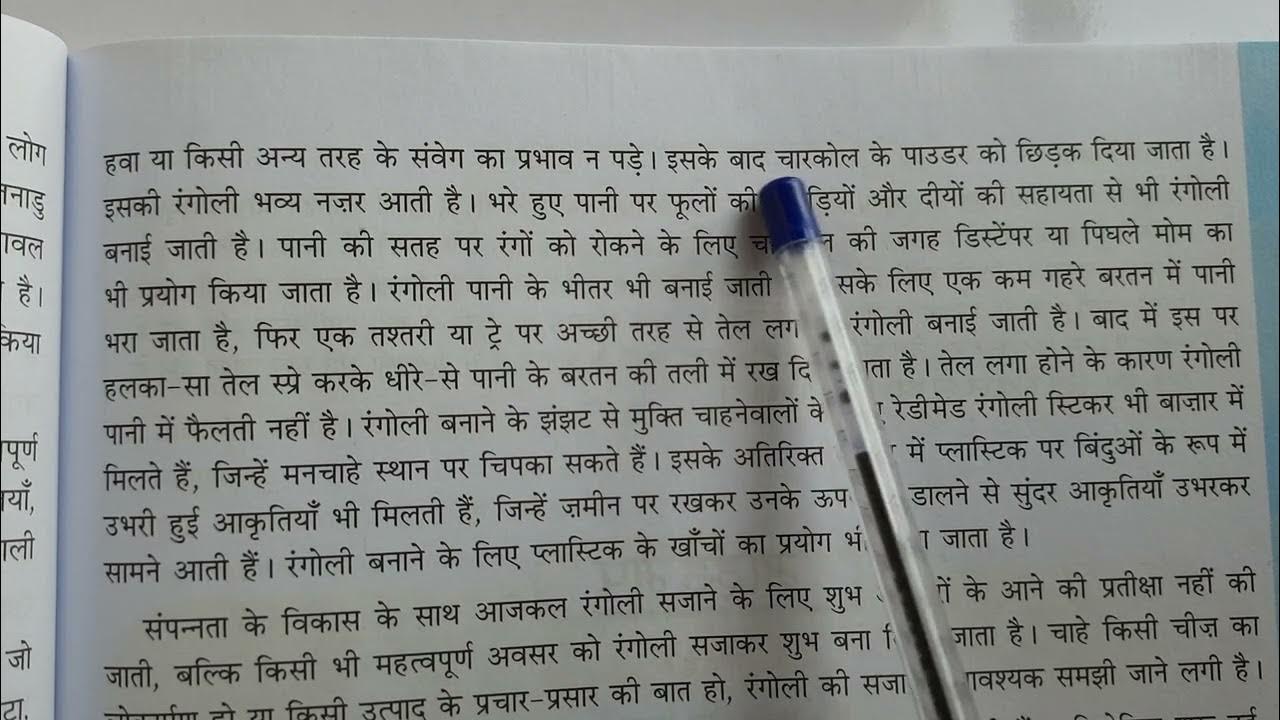 लोग
नाडु
ावल
है।
किया
पूर्ण
याँ,
ाली
जो
टा.
हवा या किसी अन्य तरह के संवेग का प्रभाव न पड़े। इसके बाद चारकोल के पाउडर को छिड़क दिया जाता है।
इसकी रंगोली भव्य नज़र आती है। भरे हुए पानी पर फूलों की ड़ियों और दीयों की सहायता से भी रंगोली
बनाई जाती है। पानी की सतह पर रंगों को रोकने के लिए की जगह डिस्टेंपर या पिघले मोम का
भी प्रयोग किया जाता है। रंगोली पानी के भीतर भी बनाई जाती सके लिए एक कम गहरे बरतन में पानी
भरा जाता है, फिर एक तश्तरी या ट्रे पर अच्छी तरह से तेल लग रंगोली बनाई जाती है। बाद में इस पर
हलका-सा तेल स्प्रे करके धीरे-से पानी के बरतन की तली में रख दि ाता है। तेल लगा होने के कारण रंगोली
पानी में फैलती नहीं है। रंगोली बनाने के झंझट से मुक्ति चाहनेवालों के रेडीमेड रंगोली स्टिकर भी बाजार में
मिलते हैं, जिन्हें मनचाहे स्थान पर चिपका सकते हैं। इसके अतिरिक्त में प्लास्टिक पर बिंदुओं के रूप में
उभरी हुई आकृतियाँ भी मिलती हैं, जिन्हें ज़मीन पर रखकर उनके ऊप डालने से सुंदर आकृतियाँ उभरकर
सामने आती हैं। रंगोली बनाने के लिए प्लास्टिक के खाँचों का प्रयोग भी जाता है।
संपन्नता के विकास के साथ आजकल रंगोली सजाने के लिए शुभ के आने की प्रतीक्षा नहीं की
जाती, बल्कि किसी भी महत्वपूर्ण अवसर को रंगोली सजाकर शुभ बना जाता है। चाहे किसी चीज़ का
हो या किसी उत्पाद के प्रचार-प्रसार की बात हो, रंगोली की सजा ावश्यक समझी जाने लगी है।